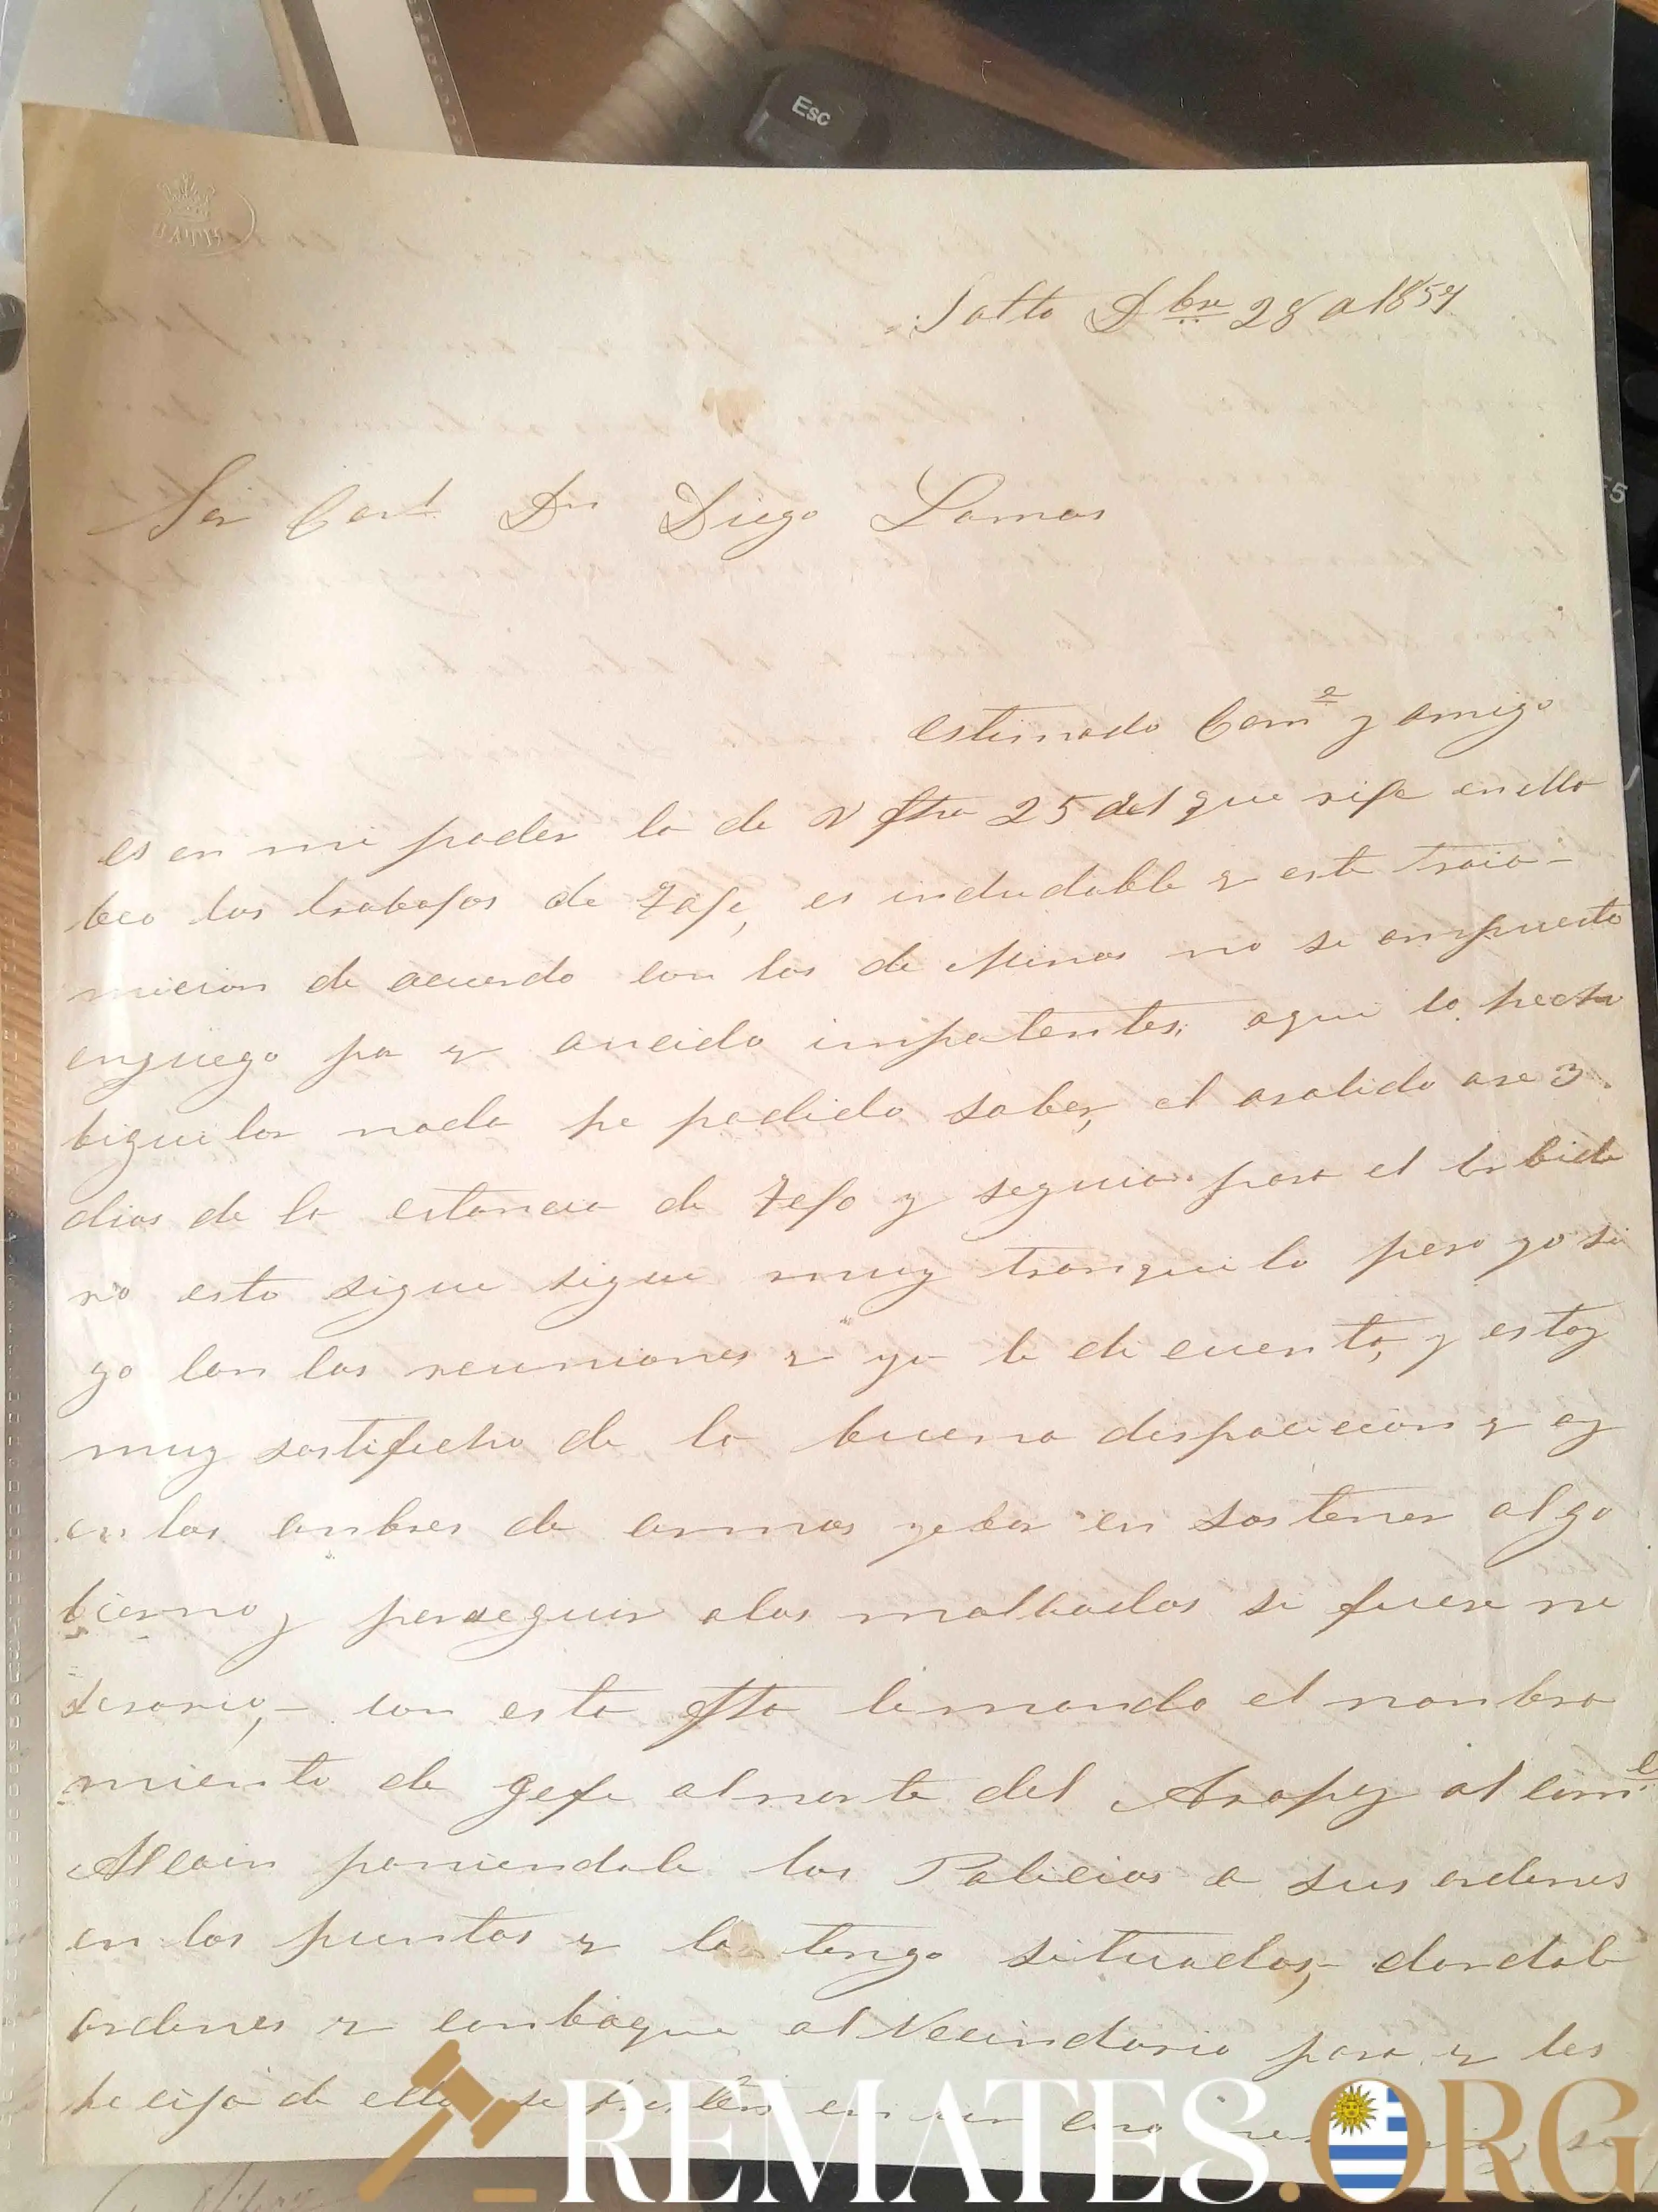 Esc
BATH
Salto Dbre 28 a 1857
F5
Sor Coral Dn Diego Lamas
estimado Come y amigo
es en mi poder la de V fha 25 del que rije en ella
beo los trabajos de es indudable q este
micion de acuerdo con los de Minas no se an puesto
en juego pr q an cido impotentes, aqui lo hecho
bijilar nada he podido saber, el a salido ase 3
dias de la estancia de y seguia para el
no esto sigue sigue muy tranquilo pero yo si
go con las reuniones q ya le di cuenta, y estoy
muy sastifecho de la buena dispocicion q ay
en los onbres de armas yebar en sostener al go
bierno y perseguir a los malbados si fuere ne
sesario, con esta fha le mando el nonbra
miento de gefe al norte del Arapey al come
Alcain poniendole las Policias a sus ordenes
en los puntos q la tengo situadas, dandole
ordenes q conboque al Vecindario para q les
de ella en un
REMATES.ORG